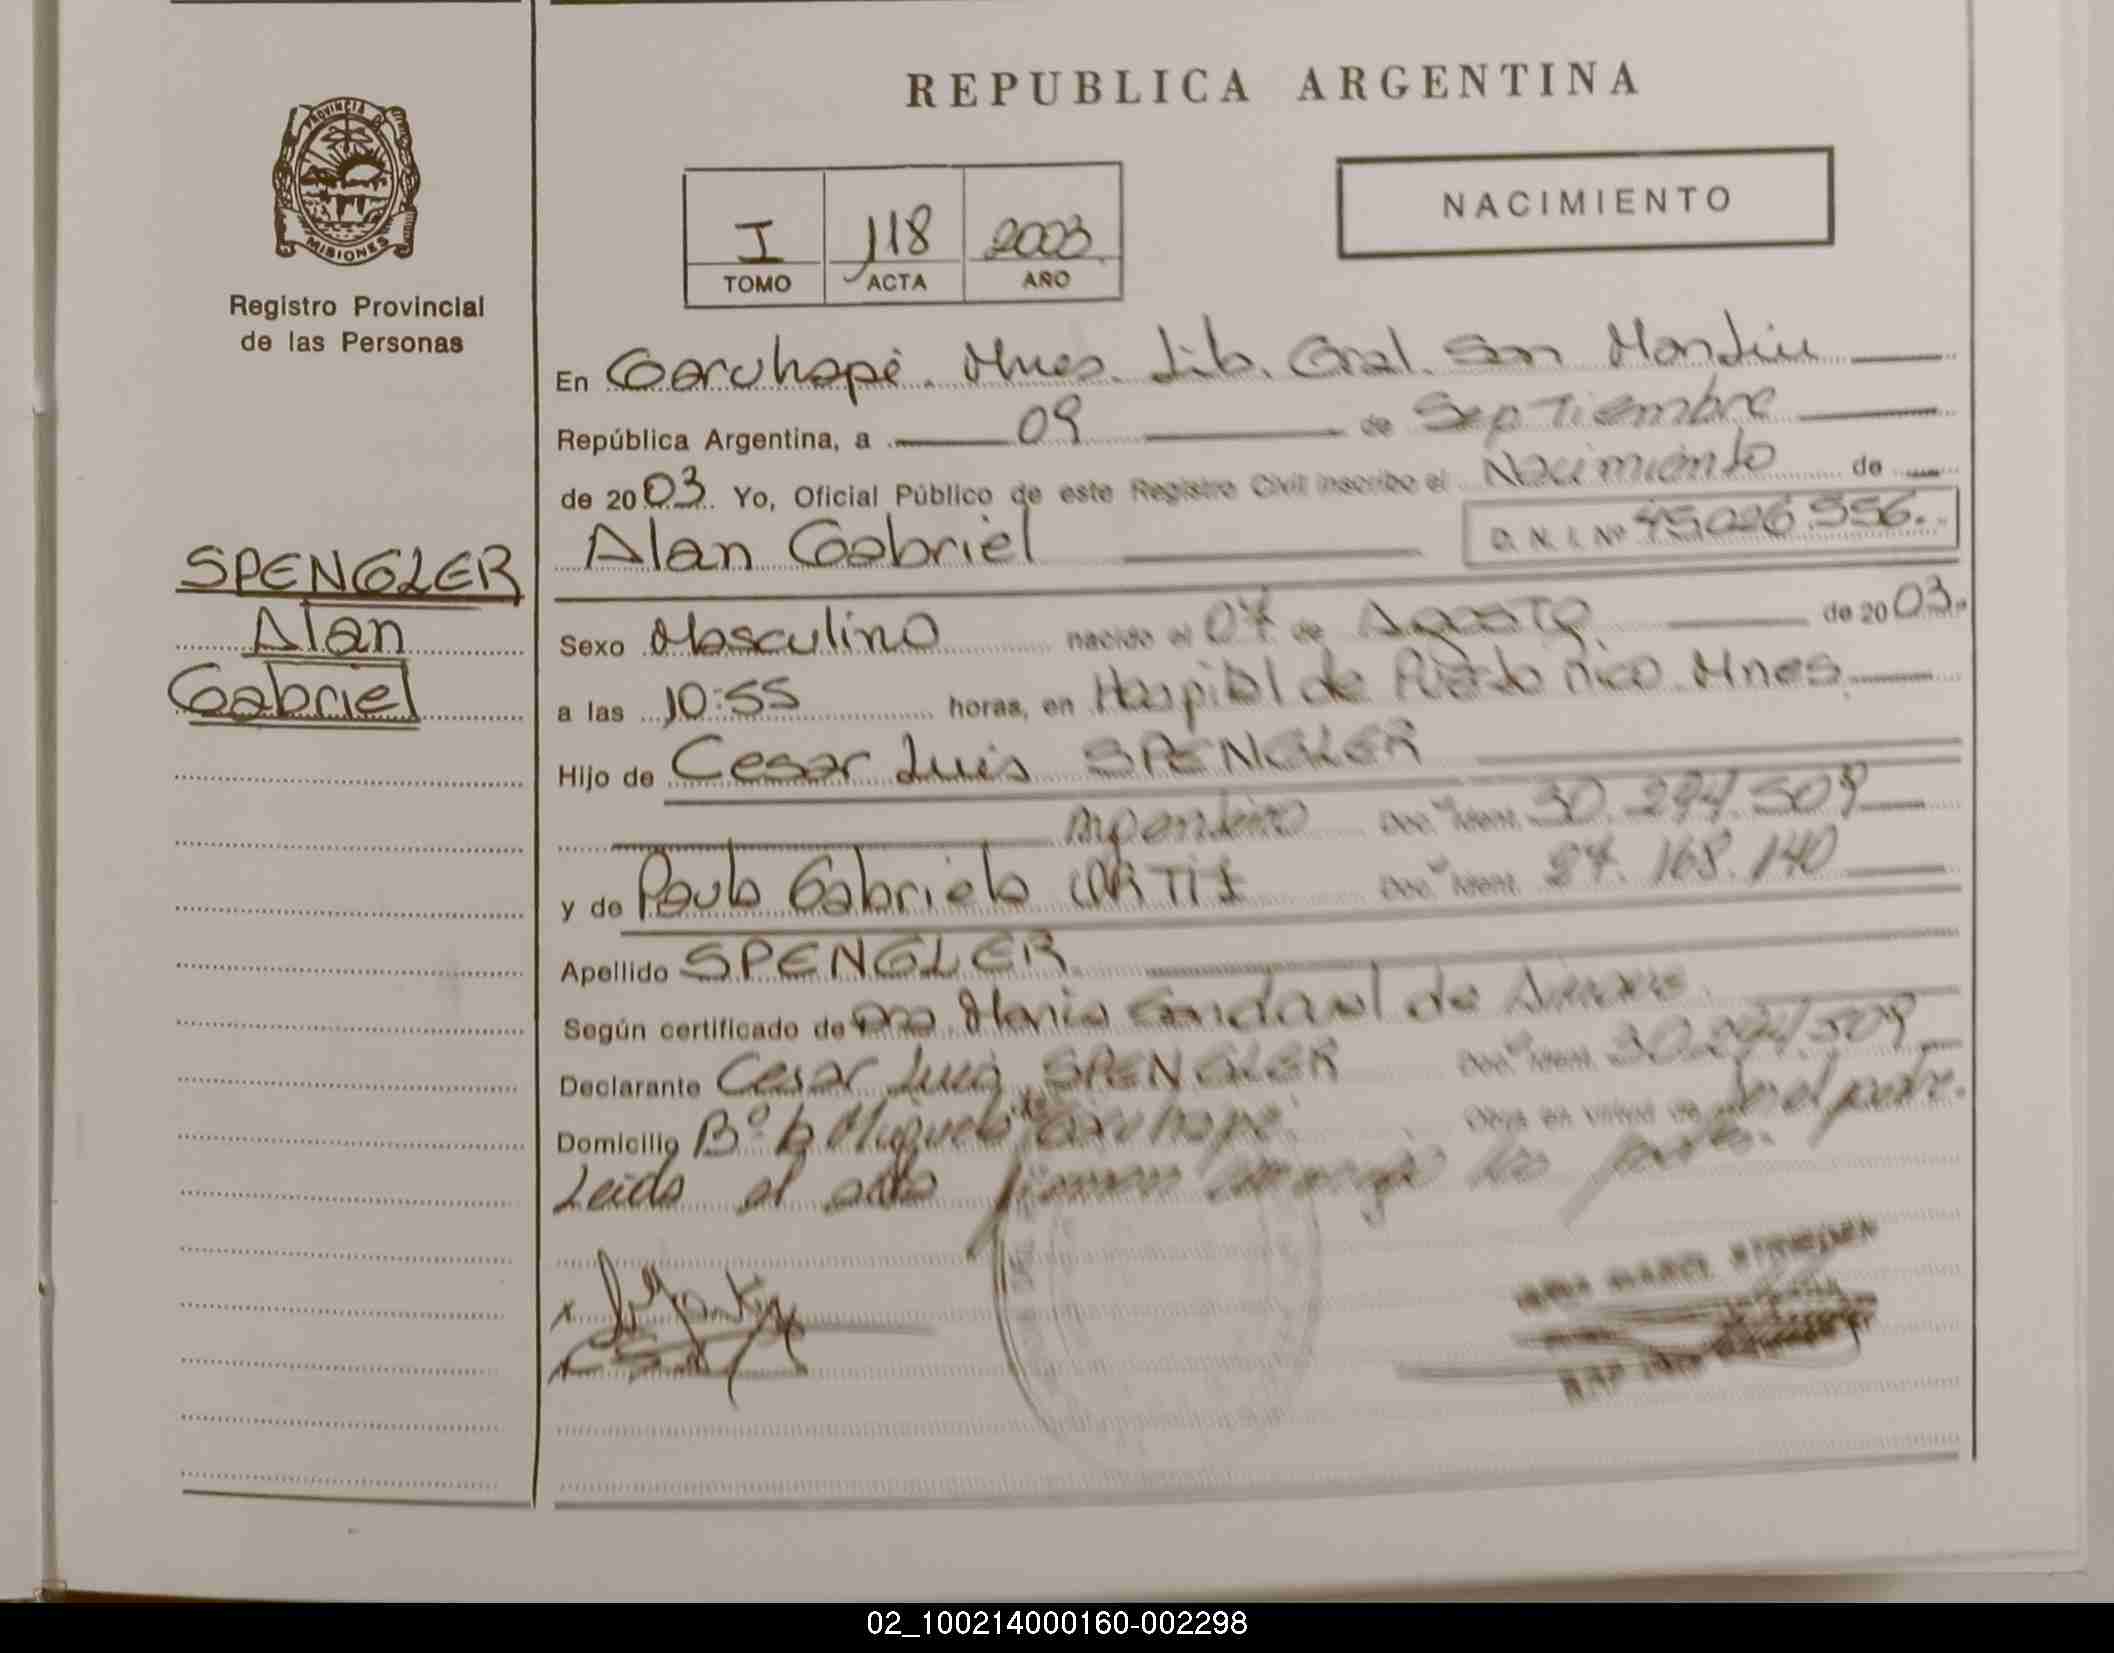 REPUBLICA ARGENTINA
PROVINCIA DE
MISIONES
Registro Provincial
de las Personas
NACIMIENTO
I 118 2003
TOMO ACTA AÑO
En Garuhapé. Mnes. Lib. Gral. San Martín
República Argentina, a 09 de Septiembre
de 2003. Yo, Oficial Público de este Registro Civil inscribo el Nacimiento de
Alan Gabriel D.N.I. Nº 45.026.556.
SPENGLER
Alan
Gabriel
Sexo Masculino nacido el 07 de Agosto de 2003.
a las 10:55 horas, en Hospital de Puerto Rico Mnes.
Hijo de Cesar Luis SPENGLER
Argentino Doc. Ident. 30.294.509
y de Paula Gabriela Doc. Ident. 27.168.140
Apellido SPENGLER
Según certificado de Dra. Maria de
Declarante Cesar Luis SPENGLER Doc. Ident. 30.294.509
Domicilio Bº Garuhapé. Obra en virtud de Ser el padre.
Leida el acta firman los padres.
02_100214000160-002298